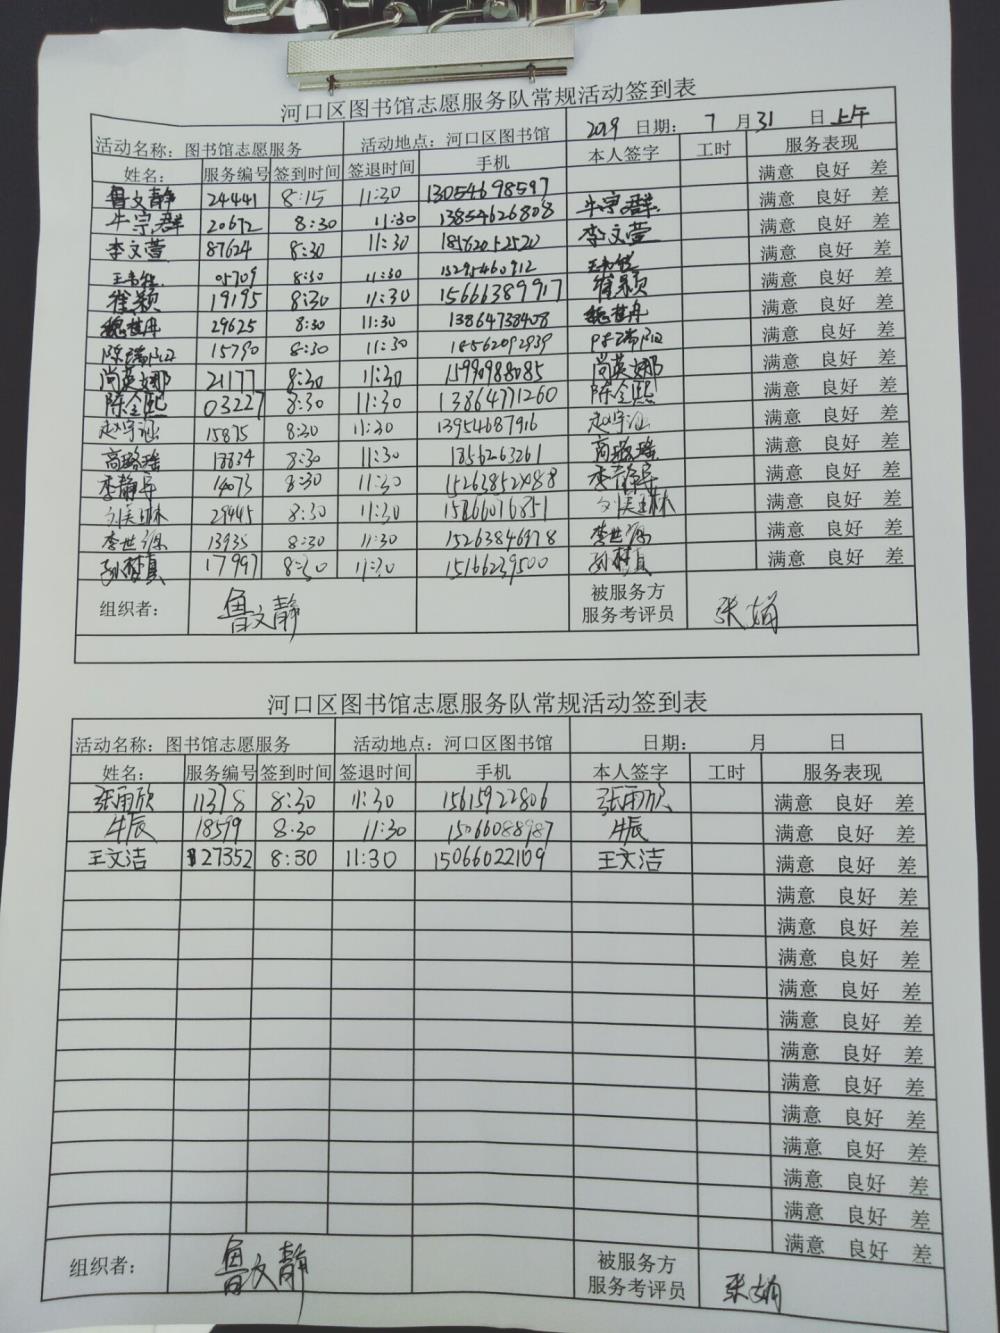 河口区图书馆志愿服务队常规活动签到表
活动名称：图书馆志愿服务 活动地点：河口区图书馆 2019 日期： 7 月 31 日 上午
姓名： 服务编号 签到时间 签退时间 手机 本人签字 工时 服务表现
鲁文静 24441 8:15 11:30 13054698597 满意 良好 差
牛宗群 20672 8:30 11:30 13854626808 牛宗群 满意 良好 差
李文萱 87624 8:30 11:30 18562052520 李文萱 满意 良好 差
05709 8:30 11:30 15295460912 满意 良好 差
崔颖 19195 8:30 11:30 15666389917 崔颖 满意 良好 差
魏楚丹 29625 8:30 11:30 13864738408 魏楚丹 满意 良好 差
15790 8:30 11:30 18562092939 满意 良好 差
尚英娜 21177 8:30 11:30 15990988085 尚英娜 满意 良好 差
陈全熙 03227 8:30 11:30 13864771260 陈全熙 满意 良好 差
赵宇涵 15875 8:30 11:30 13954687916 赵宇涵 满意 良好 差
高璐瑶 18834 8:30 11:30 1856263261 高璐瑶 满意 良好 差
14073 8:30 11:30 满意 良好 差
29445 8:30 11:30 15866016851 满意 良好 差
李世源 13935 8:30 11:30 15263846978 李世源 满意 良好 差
孙梦真 17997 8:30 11:30 15166239500 孙梦真 满意 良好 差
组织者： 鲁文静 被服务方 服务考评员 张娟
满意 良好 差
河口区图书馆志愿服务队常规活动签到表
活动名称：图书馆志愿服务 活动地点：河口区图书馆 日期： 月 日
姓名： 服务编号 签到时间 签退时间 手机 本人签字 工时 服务表现
张雨欣 11378 8:30 11:30 15615922806 张雨欣 满意 良好 差
牛辰 18599 8:30 11:30 15066088987 牛辰 满意 良好 差
王文洁 27352 8:30 11:30 15066022109 王文洁 满意 良好 差
满意 良好 差
满意 良好 差
满意 良好 差
满意 良好 差
满意 良好 差
满意 良好 差
满意 良好 差
满意 良好 差
满意 良好 差
满意 良好 差
满意 良好 差
满意 良好 差
组织者： 鲁文静 被服务方 服务考评员 张娟